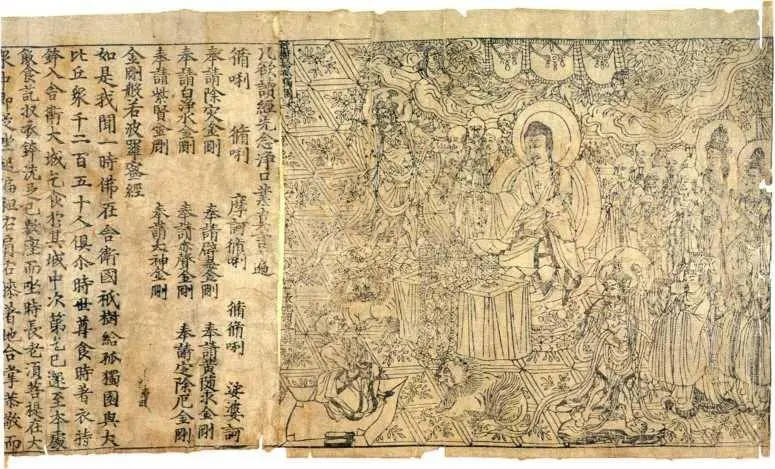 凡欲讀經先念淨口業真言一遍
脩唎 脩唎 摩訶脩唎 脩脩唎 娑婆訶
奉請除灾金剛 奉請辟毒金剛 奉請黄隨求金剛
奉請白淨水金剛 奉請赤聲金剛 奉請定除厄金剛
奉請紫賢金剛 奉請大神金剛
金剛般若波羅蜜經
如是我聞一時佛在舍衛國祇樹給孤獨園與大
比丘衆千二百五十人俱尒時世尊食時著衣持
鉢入舍衛大城乞食於其城中次第乞已還至本處
飯食訖収衣鉢洗足已敷座而坐時長老須菩提在大
衆中即從坐起偏袒右肩右膝著地合掌恭敬而